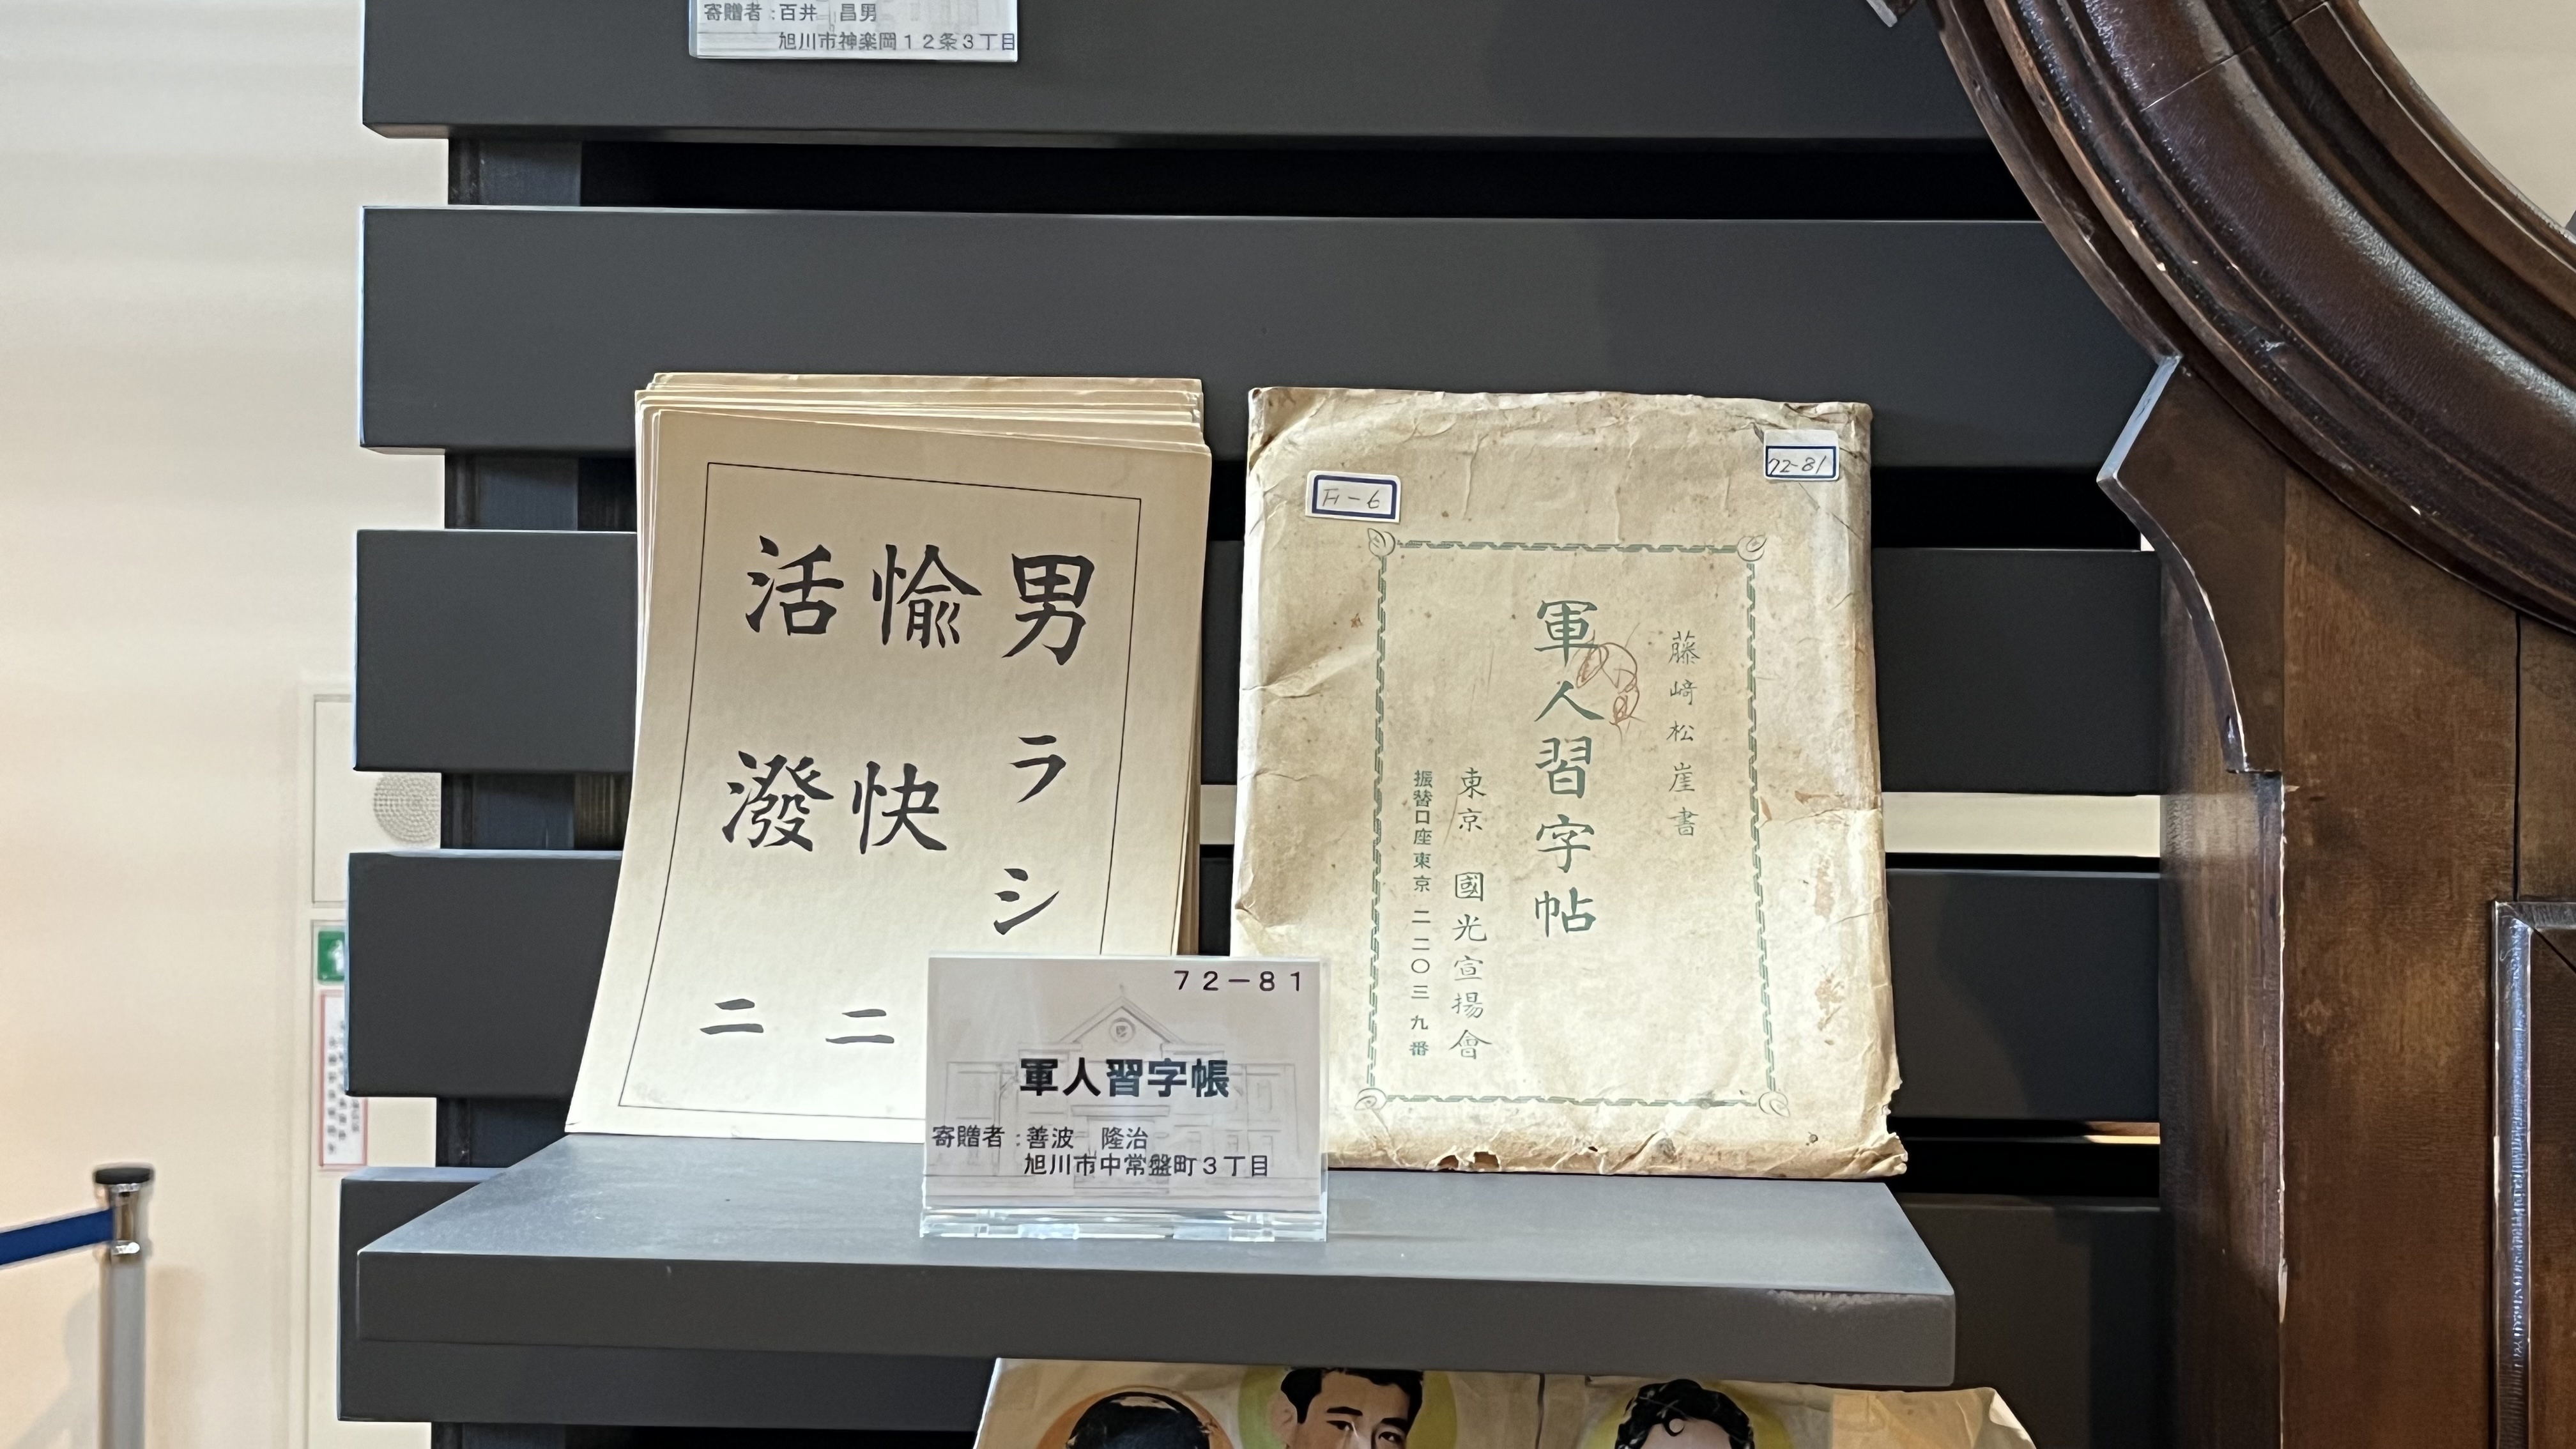 寄贈者：百井　昌男
旭川市神楽岡１２条３丁目
男ラシ
愉快ニ
活潑ニ
F-6
72-81
藤﨑松崖書
軍人習字帖
東京 國光宣揚會
振替口座東京二二〇三九番
７２－８１
軍人習字帳
寄贈者：善波　隆治
旭川市中常盤町３丁目